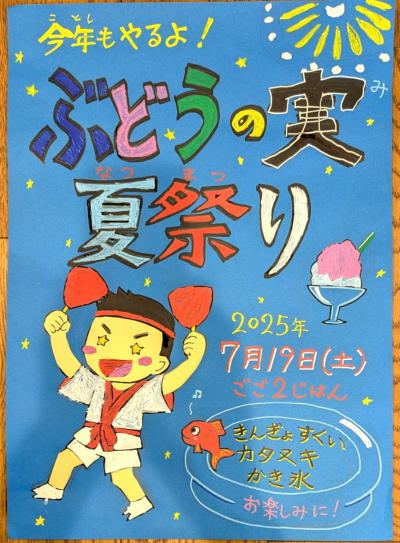 今年もやるよ！
ことし
ぶどうの実
み
なつまつ
夏祭り
2025年
7月19日(土)
ごご2じはん
きんぎょすくい
カタヌキ
かき氷
お楽しみに！